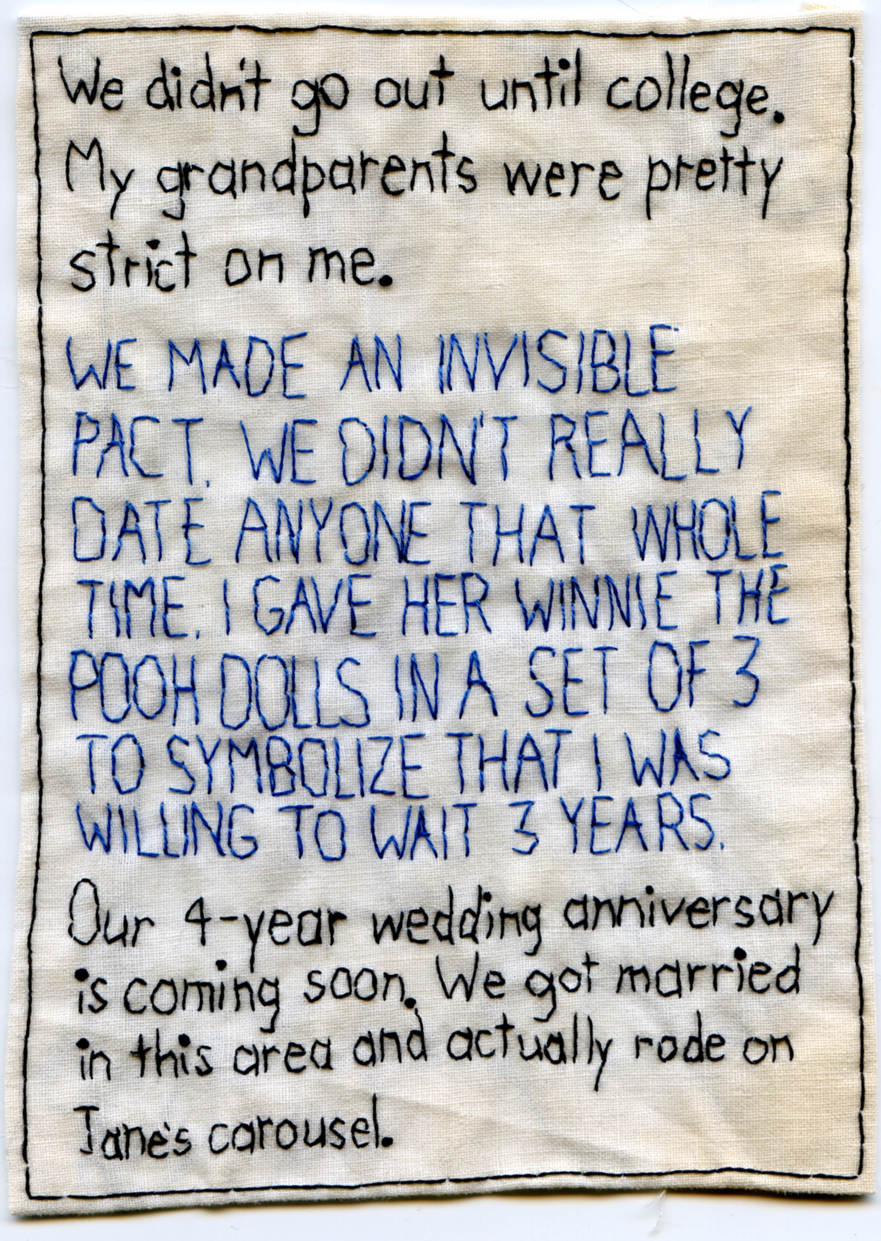 We didn't go out until college.
My grandparents were pretty
strict on me.
WE MADE AN INVISIBLE
PACT. WE DIDN'T REALLY
DATE ANYONE THAT WHOLE
TIME. I GAVE HER WINNIE THE
POOH DOLLS IN A SET OF 3
TO SYMBOLIZE THAT I WAS
WILLING TO WAIT 3 YEARS.
Our 4-year wedding anniversary
is coming soon. We got married
in this area and actually rode on
Jane's carousel.